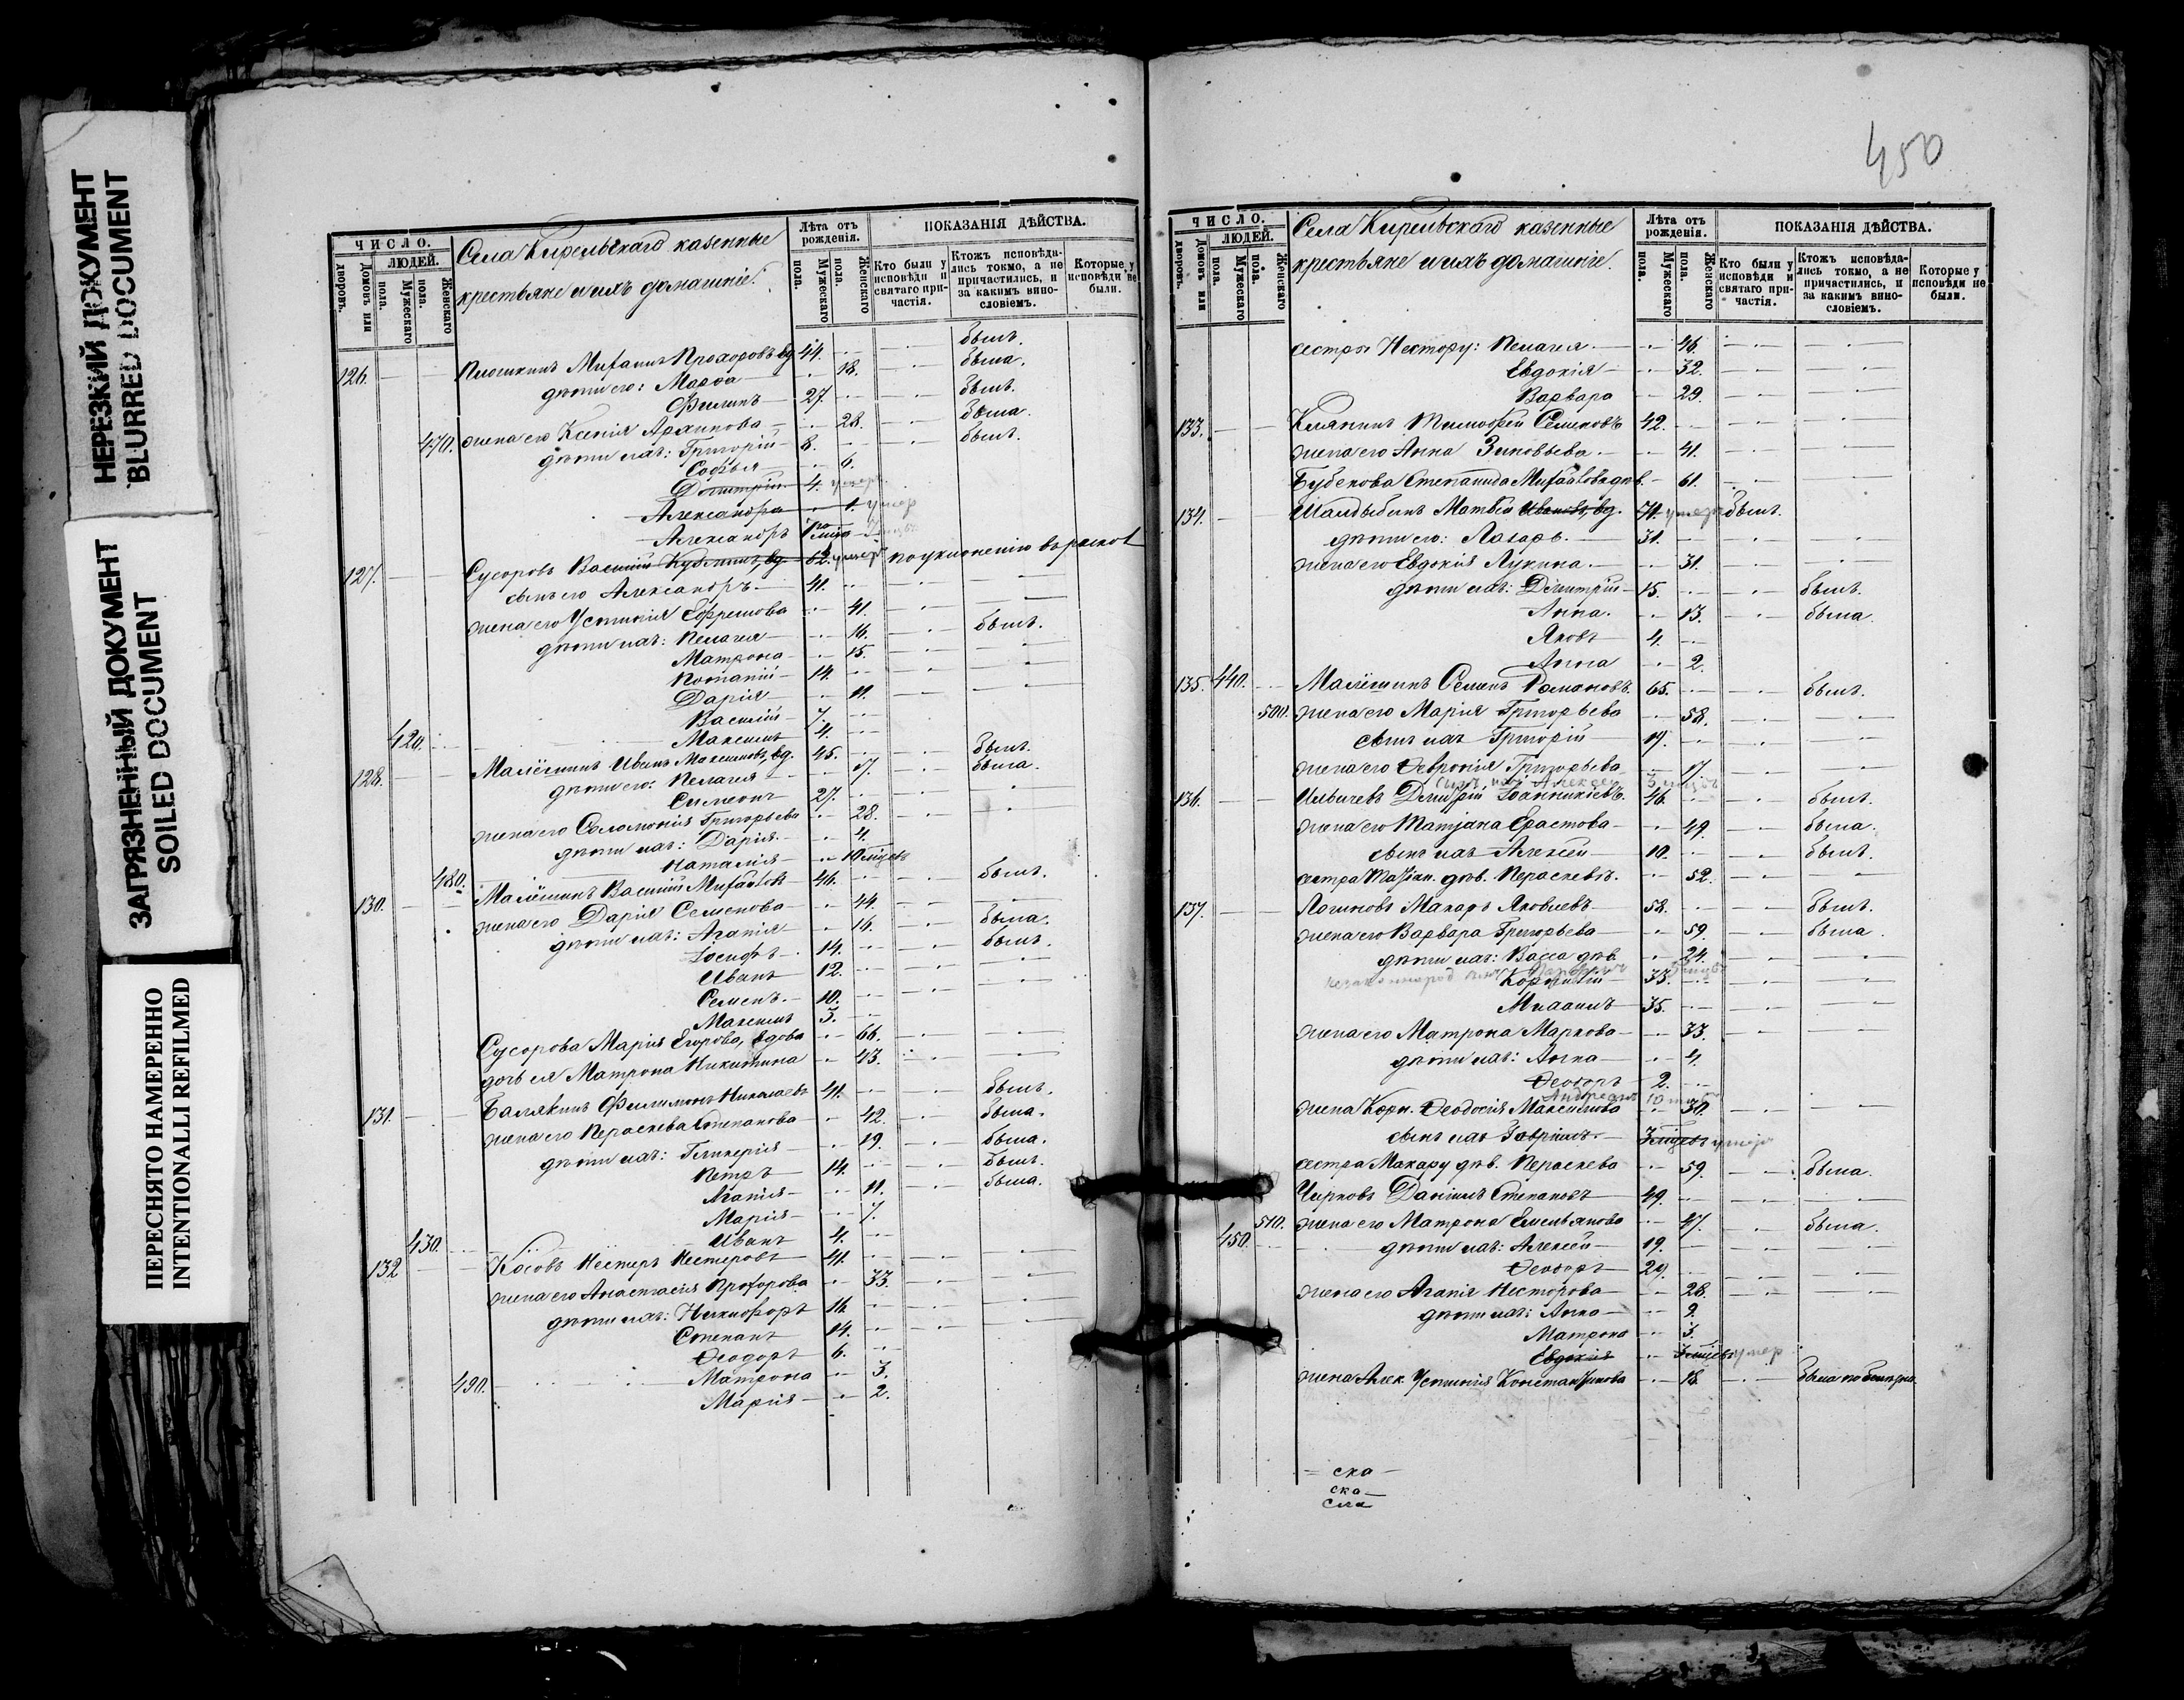 НЕРЕЗКИЙ ДОКУМЕНТ
BLURRED DOCUMENT
ЗАГРЯЗНЕННЫЙ ДОКУМЕНТ
SOILED DOCUMENT
ПЕРЕСНЯТО НАМЕРЕННО
INTENTIONALLI REFILMED
ЧИСЛО.
Домовъ или дворовъ.
ЛЮДЕЙ.
Мужескаго пола.
Женскаго пола.
Села Кирельскаго казенные
крестьяне и ихъ домашніе.
Лѣта отъ рожденія.
Мужескаго пола.
Женскаго пола.
ПОКАЗАНІЯ ДѢЙСТВА.
Кто были у исповѣди и святаго причастія.
Ктожъ исповѣдались токмо, а не причастились, и за какимъ винословіемъ.
Которые у исповѣди не были.
126. Михаилъ Прохоровъ вд. 44. былъ.
дѣти его: Марѳа 18. была.
Филипъ 27. былъ.
470. жена его Ксенія Архипова 28. была.
дѣти ихъ: Григорій 8. былъ.
Софья 6.
Димитрій 4. умеръ
Александра 1. умер
Александръ
127. Сусоровъ Василій Кузминъ, вд. 62. умеръ по уклоненію въ расколъ
сынъ его Александръ 41.
жена его Устинія Ефремова 41.
дѣти ихъ: Пелагея 16. былъ.
Матрона 15.
Потапій 14.
Дарія 11.
Василій 7.
420. Максимъ 4.
128. Малёшинъ Иванъ Максимовъ, вд. 45. былъ.
дѣти его: Пелагея 17. была.
Симеонъ 27.
жена его Соломонія Григорьева 28.
дѣти ихъ: Дарія 4.
480. Наталія 10 мѣсцевъ
130. Малёшинъ Василій Михайловъ 46. былъ.
жена его Дарія Семенова 44.
дѣти ихъ: Агапія 16. была.
Іосифъ 14. былъ.
Иванъ 12.
Семенъ 10.
Максимъ 3.
Сусорова Марія Егорова, вдова 66.
дочь ея Матрона Никитина 43.
131. Балякинъ Филимонъ Николаевъ 41. былъ.
жена его Параскева Степанова 42. была.
дѣти ихъ: Гликерія 19. была.
Петръ 14. былъ.
Агапія 11. была.
Марія 7.
430. Иванъ 4.
132 Косовъ Несторъ Нестеровъ 41.
жена его Анастасія Прохорова 33.
дѣти ихъ: Никифоръ 16.
Степанъ 14.
Ѳеодоръ 6.
490. Матрона 3.
Марія 2.
450
ЧИСЛО.
Домовъ или дворовъ.
ЛЮДЕЙ.
Мужескаго пола.
Женскаго пола.
Села Кирельскаго казенные
крестьяне и ихъ домашніе.
Лѣта отъ рожденія.
Мужескаго пола.
Женскаго пола.
ПОКАЗАНІЯ ДѢЙСТВА.
Кто были у исповѣди и святаго причастія.
Ктожъ исповѣдались токмо, а не причастились, и за какимъ винословіемъ.
Которые у исповѣди не были.
сестры Нестору: Пелагея 46.
Евдокія 32.
Варвара 29.
133. Тимофей Семеновъ 42.
жена его Анна Зиновьева 41.
Бубенова Степанида Михайловадѣв. 61.
134. Шалдыбинъ Матвѣй Ивановъ, вд. 71. умеръ былъ.
дѣти его: Лазарь 31.
жена его Евдокія Лукина 31.
дѣти ихъ: Димитрій 15. былъ.
Анна. 13. была
Яковъ 4.
Анна 2.
135. 440. Малёшинъ Семенъ Романовъ 65. былъ.
500. жена его Марія Григорьева 58.
сынъ ихъ Григорій 19.
жена его Ѳевронія Григорьева 17.
сынъ ихъ Алексѣй 3 мѣсцъ
136. Дмитрій Іоанникіевъ 46. былъ.
жена его Татіана Ерастова 49. была.
сынъ ихъ Алексѣй 10. былъ.
сестра Татіан. дѣв. Параскевія 52.
137. Логиновъ Макаръ Яковлевъ 58. былъ.
жена его Варвара Григорьева 59. была.
дѣти ихъ: Васса дѣв. 24.
Корнилій 33.
Михаилъ 35.
жена его Матрона Маркова 33.
дѣти ихъ: Анна 4.
Ѳеодоръ 2.
Андреянъ 10
жена Корн. Ѳеодосія Максимова 30.
сынъ ихъ Гавріилъ 3 мѣсцевъ умеръ
сестра Макару дѣв. Параскева 59. была.
Чирковъ Даніилъ Степановъ 49.
510. жена его Матрона Емельянова 47. была.
450. дѣти ихъ: Алексѣй 19.
Ѳеодоръ 29.
жена его Агапія Несторова 28.
дѣти ихъ: Анна 9.
Матрона 3.
Евдокія умер
жена Алек. Устинія Константинова 18.
ска
ска